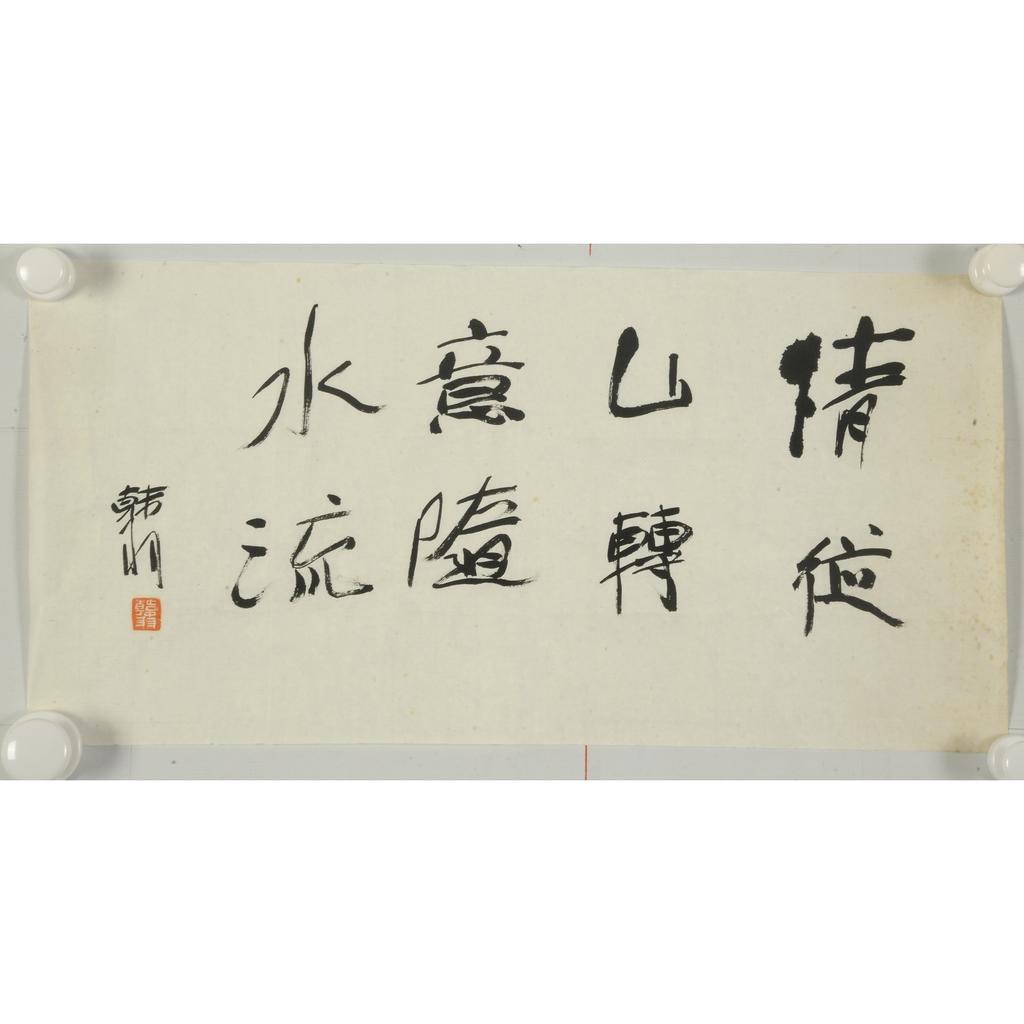 情從
山轉
意隨
水流
韩羽
韓羽